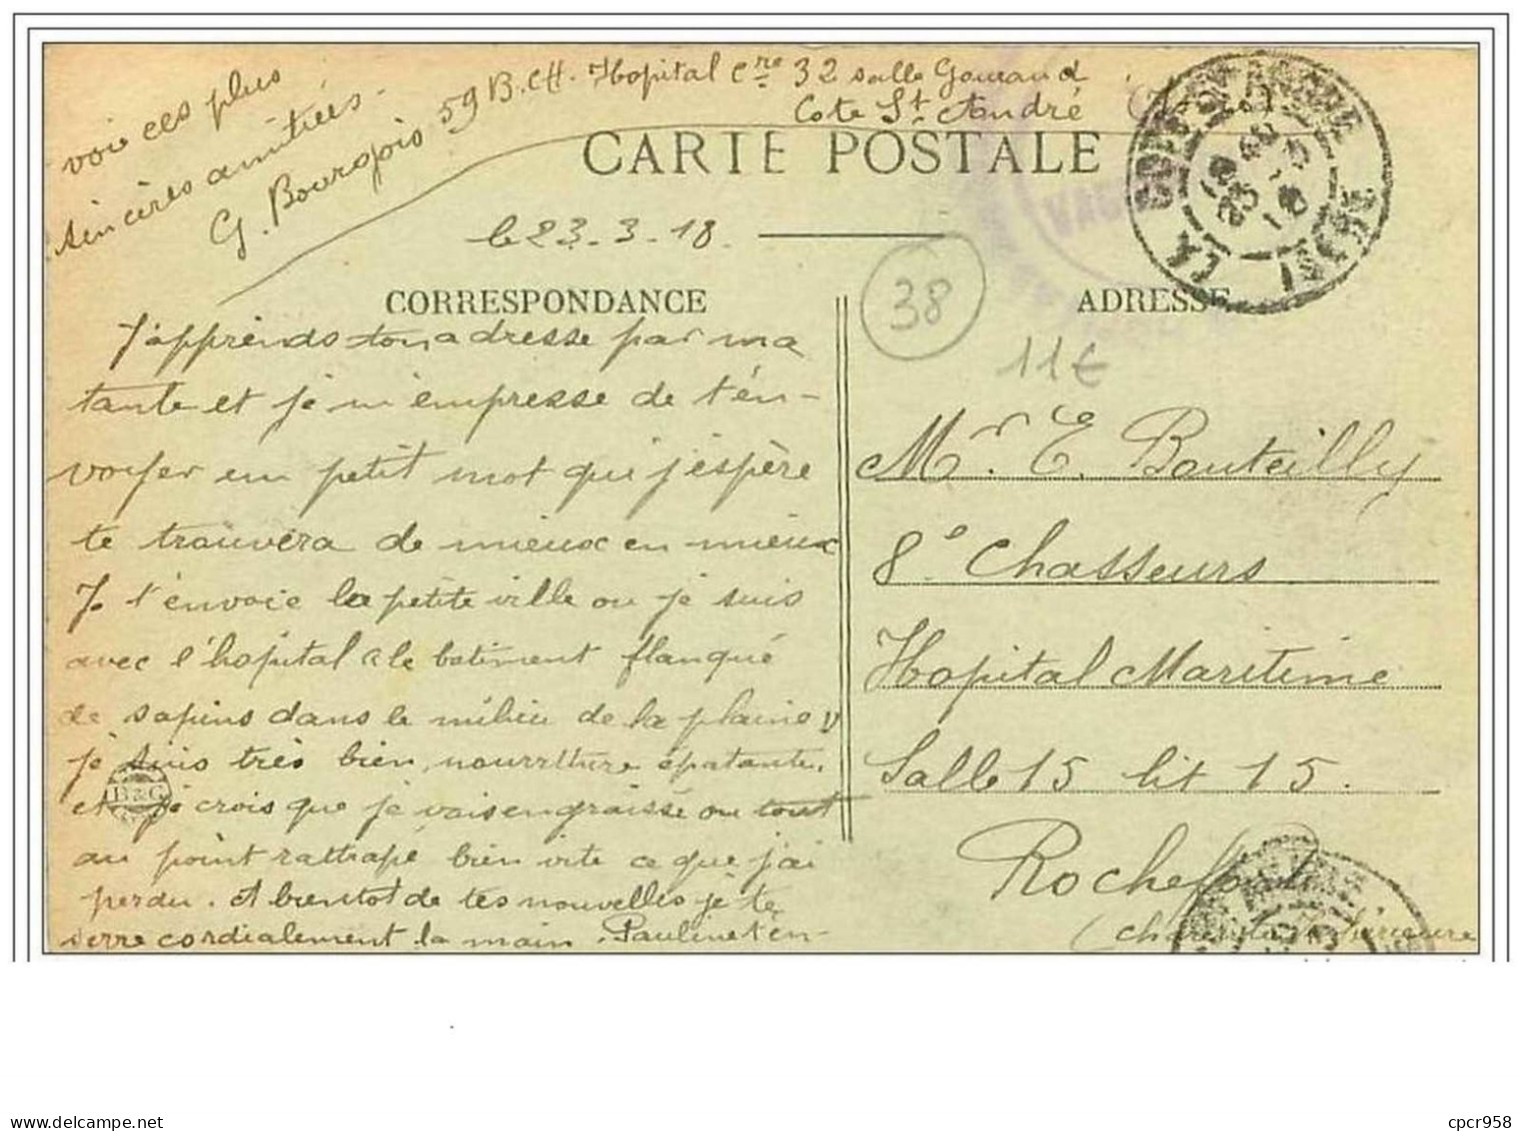 voie ces plus
sincères amitiés -
G. Bourgois 59 B.CH. Hopital Cre 32 salle Gouraud
Cote St André
CARTE POSTALE
le 23.3.18.
CORRESPONDANCE
J'apprends ton adresse par ma
tante et je m'empresse de t'en-
voyer un petit mot que j'espère
te trouvera de mieux en mieux
Je t'envoie la petite ville ou je suis
avec l'hopital a le batiment flanqué
de sapins dans le milieu de la plaine
je suis très bien, nourriture épatante,
et je crois que je vais engraissé ou tout
au point rattrapé bien vite ce que j'ai
perdu. A bientot de tes nouvelles je te
serre cordialement la main. Pauline t'en-
B & G
38
ADRESSE
11€
Mr. E. Bouteilly
8e Chasseurs
Hopital Maritime
Salle 15 lit 15.
Rochefort
(Charente Inférieure
LA COTE ST ANDRE
ISERE
cpcr958